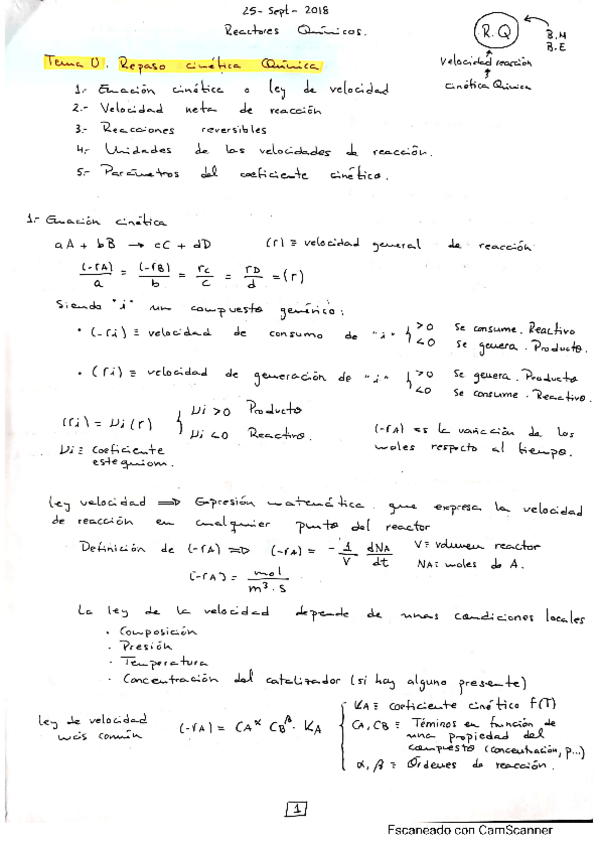 25- Sept- 2018
Reactores Químicos.
R.Q
B.M
B.E
velocidad reacción
cinética Química
Tema 0. Repaso cinética Química
1.- Ecuación cinética o ley de velocidad
2.- Velocidad neta de reacción
3.- Reacciones reversibles
4.- Unidades de las velocidades de reacción.
5.- Parámetros del coeficiente cinético.
1.- Ecuación cinética
aA + bB → cC + dD (r) ≡ velocidad general de reacción
(-rA)/a = (-rB)/b = rC/c = rD/d = (r)
Siendo "i" un compuesto genérico:
• (-ri) ≡ velocidad de consumo de "i" { >0 Se consume. Reactivo
<0 Se genera. Producto.
• (ri) ≡ velocidad de generación de "i" { >0 Se genera. Producto
<0 Se consume. Reactivo.
(ri) = νi (r) { νi >0 Producto
νi <0 Reactivo.
νi ≡ Coeficiente
estequiom.
(-rA) es la variación de los
moles respecto al tiempo.
ley velocidad ⇒ Expresión matemática que expresa la velocidad
de reacción en cualquier punto del reactor
Definición de (-rA) ⇒ (-rA) = - 1/V dNA/dt V= volumen reactor
NA: moles de A.
(-rA) = mol/m³·s
La ley de la velocidad depende de unas condiciones locales
• Composición
• Presión
• Temperatura
• Concentración del catalizador (si hay alguno presente)
ley de velocidad
más común
(-rA) = CA^α CB^β · KA
KA ≡ coeficiente cinético f(T)
CA, CB ≡ Téminos en función de
una propiedad del
compuesto (concentración, p...)
α, β ≡ Órdenes de reacción.
1
Escaneado con CamScanner